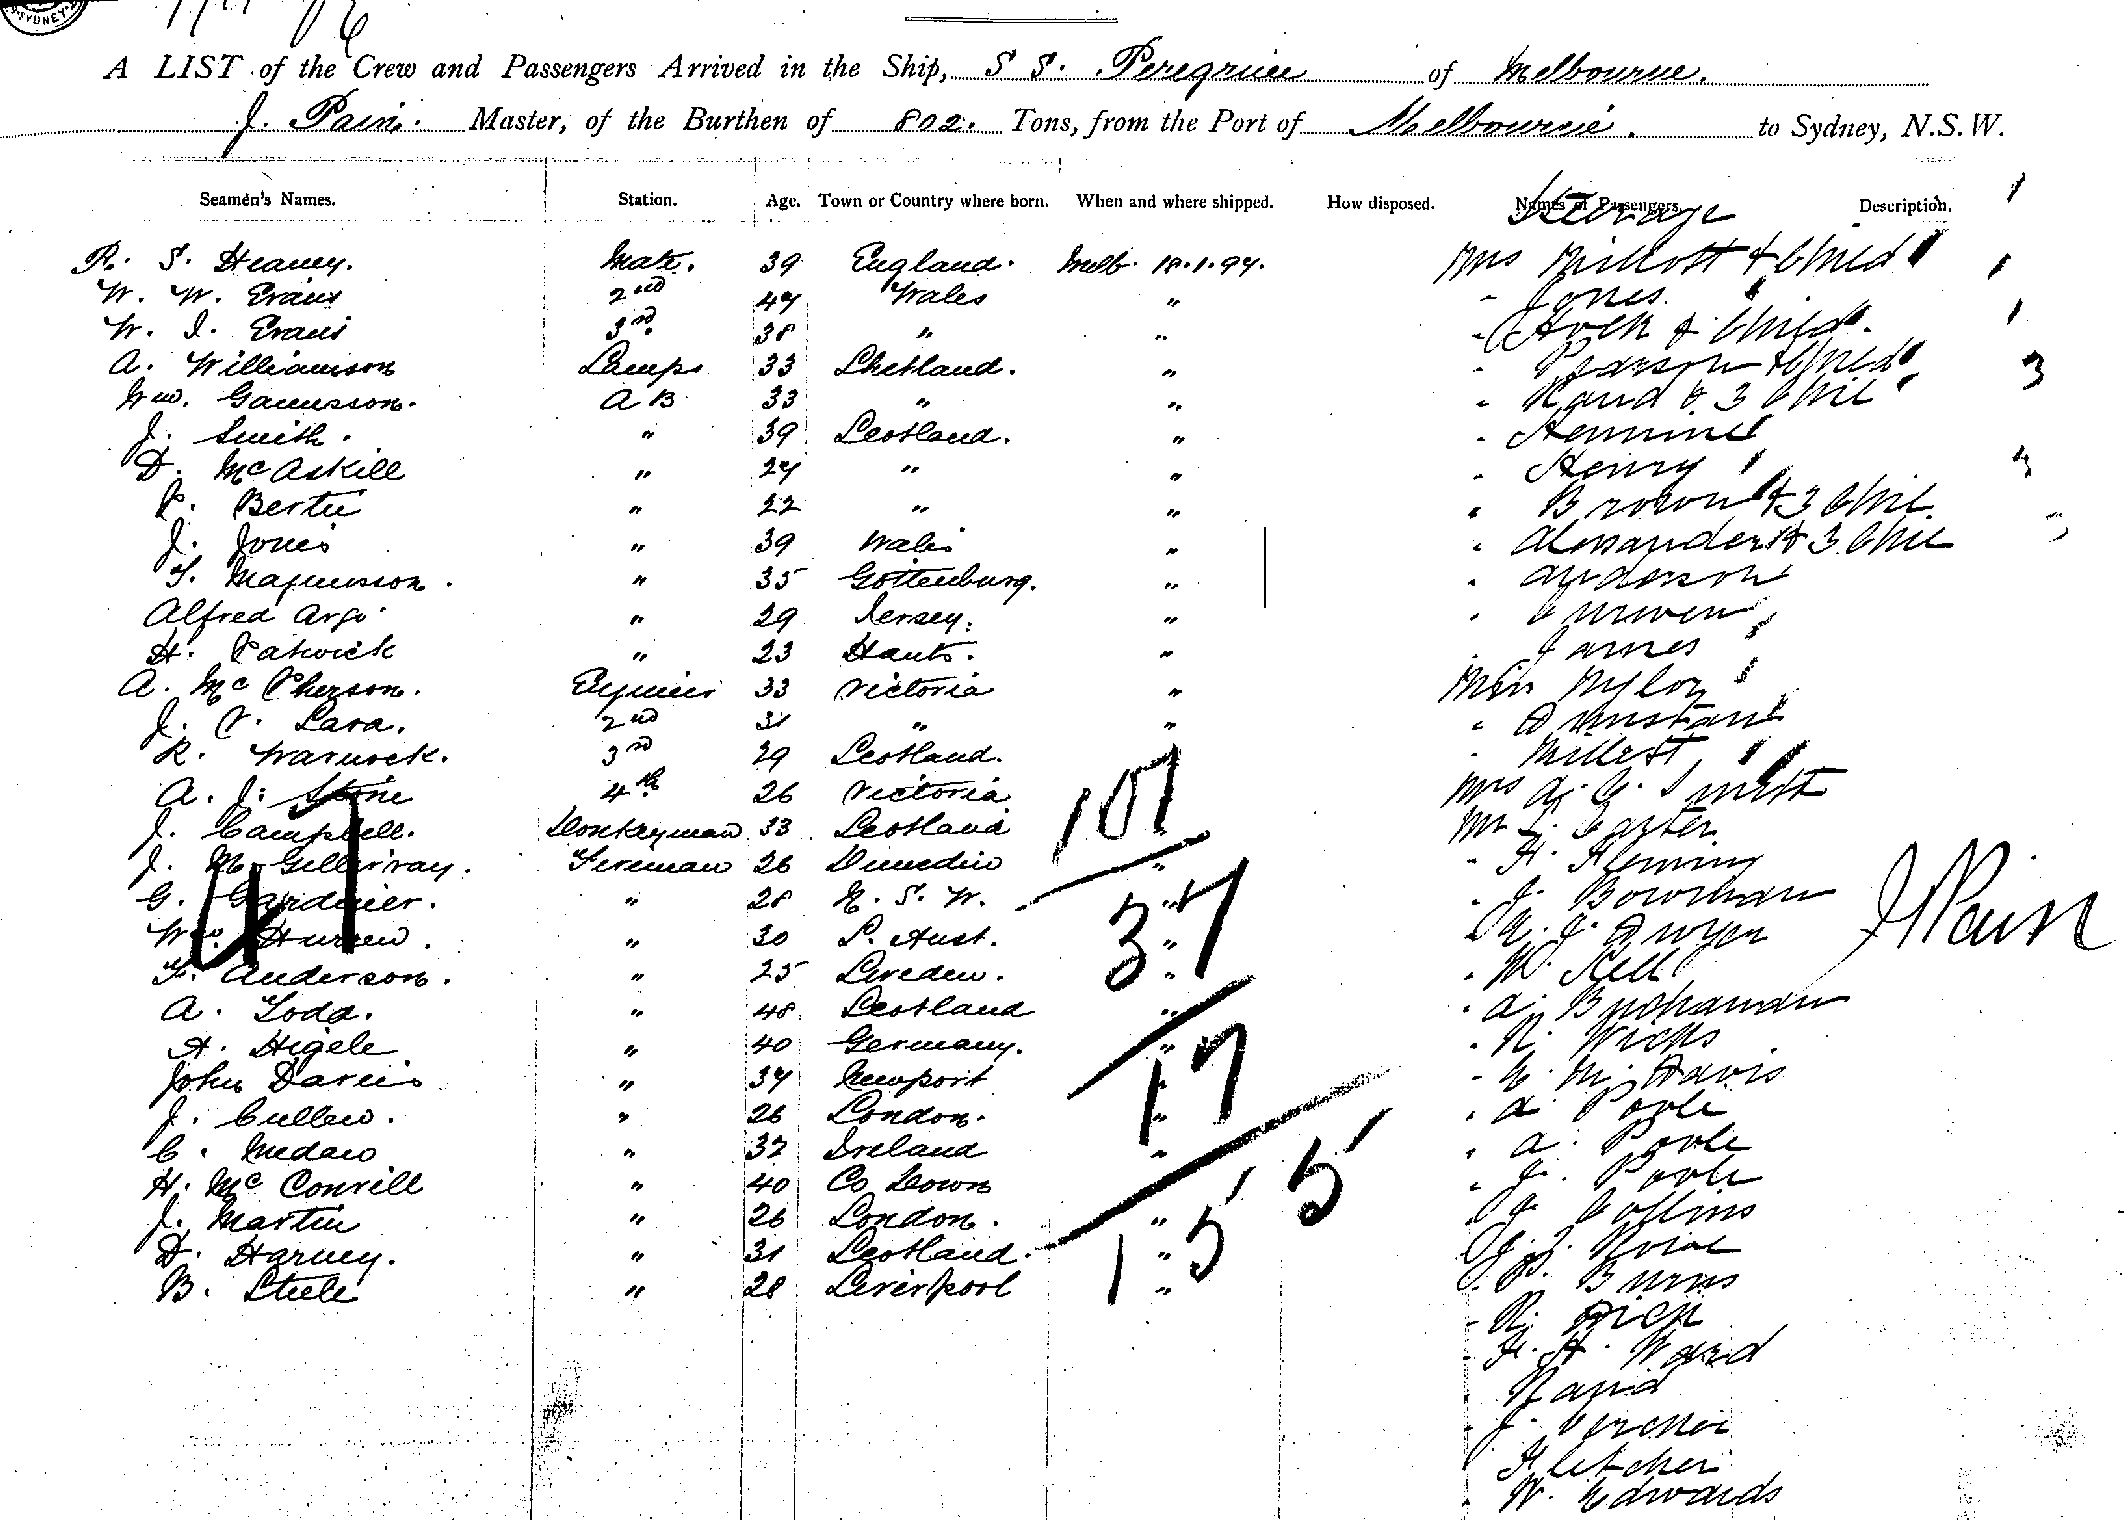 SYDNEY
A LIST of the Crew and Passengers Arrived in the Ship, S S. Peregrine of Melbourne.
J. Pain. Master, of the Burthen of 802. Tons, from the Port of Melbourne. to Sydney, N.S.W.
Seamen's Names. Station. Age. Town or Country where born. When and where shipped. How disposed. Names of Passengers Description. 1
Steerage
R. S. Heaney. Mate. 39 England. Melb. 18.1.97. Mrs Millott & Child 1
W. W. Evans 2nd 47 Wales " " Jones
W. J. Evans 3rd 38 " " " Hock & Child. 1
A. Williamson Lamps 33 Shetland. " " Pearson & Child 3
Wm. Gamusson. A B 33 " " " Rand & 3 Chil
J. Smith. " 39 Scotland. " "
D. McAskill " 27 " " " Henry
P. Bertie " 22 " " " Brown & 3 Chil
J. Jones " 39 Wales " " Alexander & 3 Chil
T. Magnusson. " 35 Gottenburg. " " Anderson
Alfred Argo " 29 Jersey. " " Curwen
H. Patwick " 23 Hants. " " James
A. McPherson. Engineer 33 Victoria " Miss Nylon
J. P. Lara. 2nd 31 " " " Dunstan
R. Warwick. 3rd 29 Scotland. " Millest
A. J. Stone 4th 26 Victoria 107 Mrs A. G. Smith
J. Campbell. Donkeyman 33 Scotland Mr Carter
J. McGillivray. Fireman 26 Dunedin " " H. Fleming
47
G. Gardiner. " 28 N. S. W. " " J. Bowman
Wm. Hurren. " 30 S. Aust. 37 " " J. Dwyer J Pain
F. Anderson. " 25 Sweden. " " W. Kell
A. Todd. " 48 Scotland " " A. Buchanan
A. Higele " 40 Germany. " " R. Wicks
John Davies " 37 Newport 17 " " E. M. Davis
J. Cullen. " 26 London. " " A Poole
C. Medaw " 32 Ireland " " A. Poole
H. McConvill " 40 Co Down 5 " J. Poole
J. Martin " 26 London. " " J Collins
D. Harvey. " 31 Scotland. 155 "
B. Steele " 28 Liverpool " " Burns
" R. Dick
" F. H. Ward
" Rapid
" J.
Fletcher
" W. Edwards